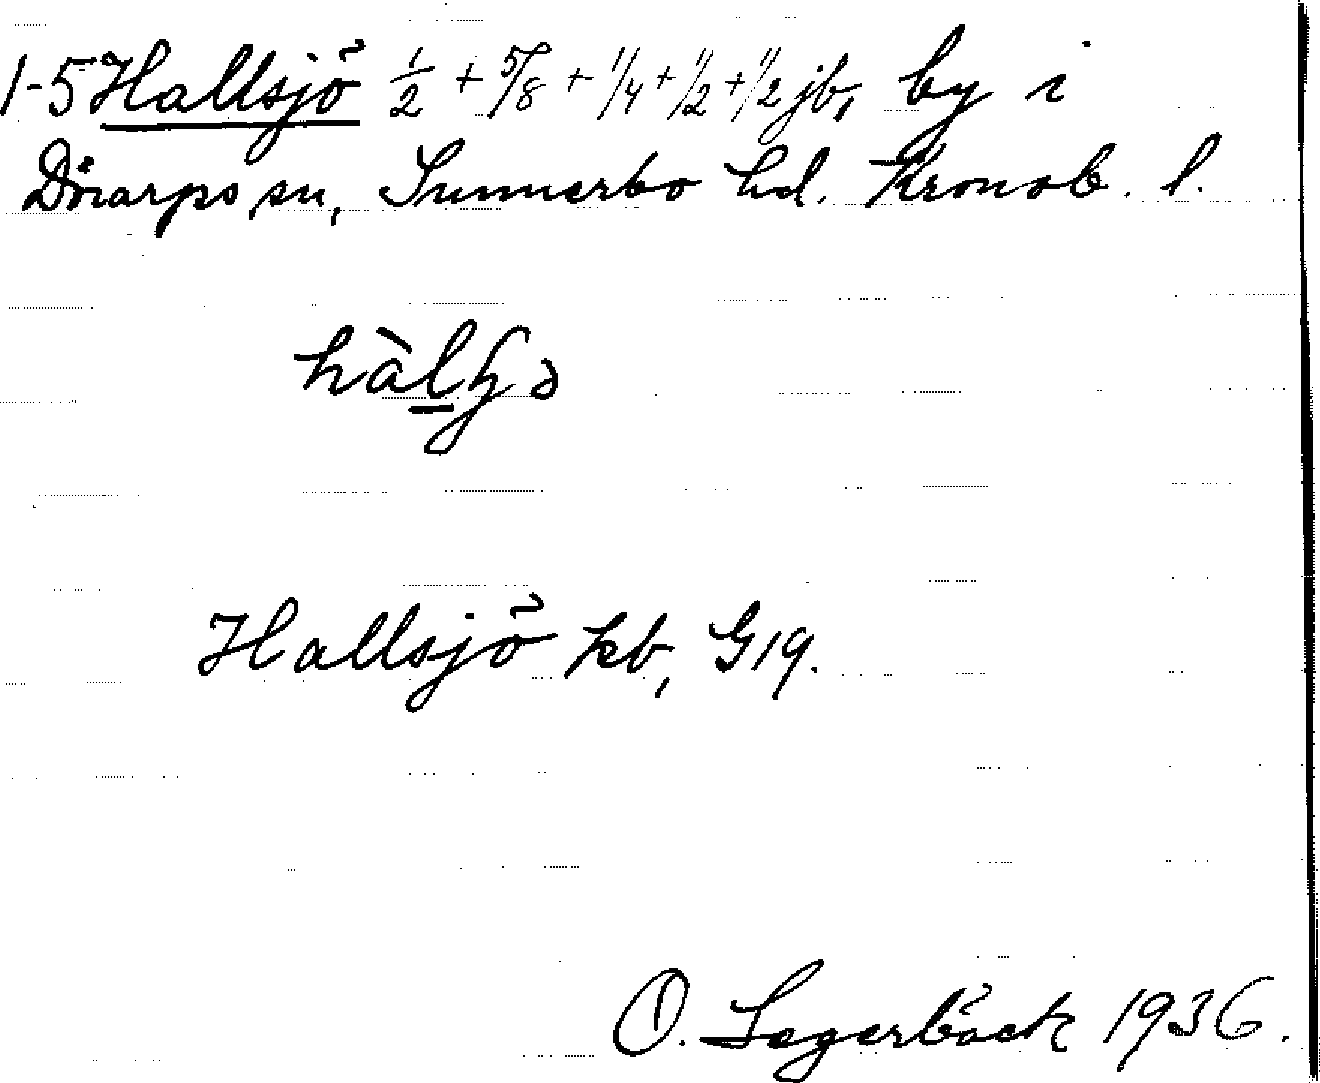 1-5 Hallsjö 1/2 + 5/8 + 1/4 + 1/2 + 1/2 jb, by i
Dörarps sn, Sunnerbo hd. Kronob. l.
Hallsjö kb, G19.
O. Segerbäck 1936.